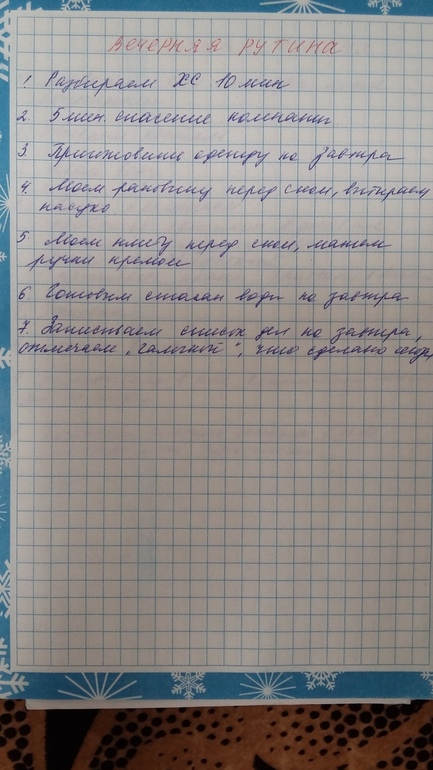 ВЕЧЕРНЯЯ РУТИНА
1. Разбираем ХС 10 мин
2. 5 мин. спасение комнаты
3. Приготовили одежду на завтра
4. Моем раковину перед сном, вытираем
насухо
5. Моем плиту перед сном, мажем
ручки кремом
6 Готовим стакан воды на завтра
7. Записываем список дел на завтра,
отмечаем "галочкой", что сделано